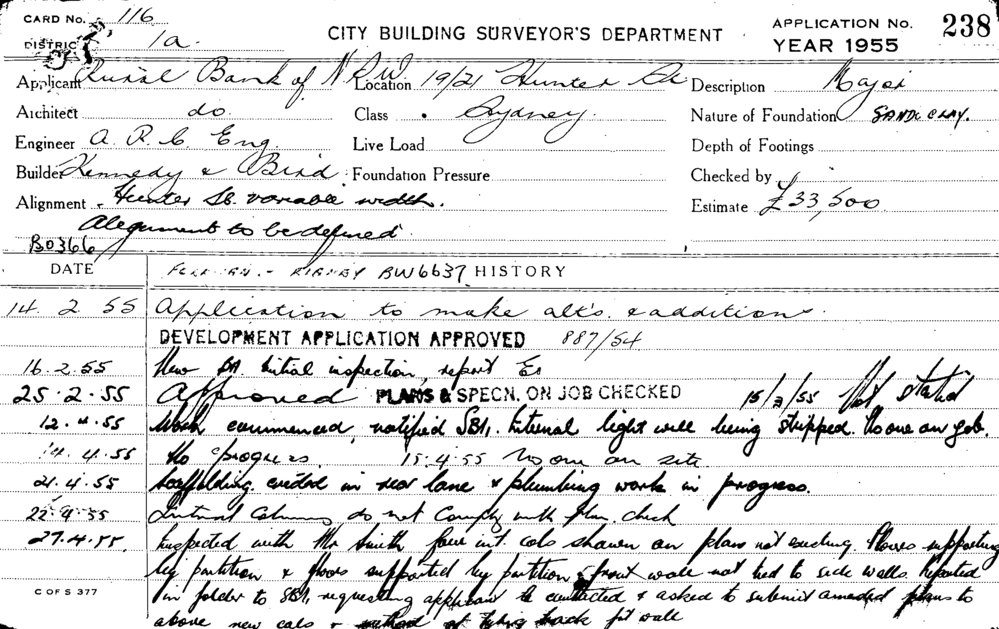 CARD No. 116
CITY BUILDING SURVEYOR'S DEPARTMENT
APPLICATION No. 238
YEAR 1955
DISTRICT 1a
Applicant Rural Bank of N.S.W. Location 19/21 Hunter St Description Major
Architect do. Class . Sydney. Nature of Foundation SAND & CLAY.
Engineer A. R. C Eng. Live Load Depth of Footings
Builder Kennedy & Bird Foundation Pressure Checked by
Alignment Hunter St. variable width. Estimate £33,500
Alignment to be defined.
B0366
DATE BW6637 HISTORY
14. 2. 55 Application to make alts. & additions.
DEVELOPMENT APPLICATION APPROVED 887/54
16.2.55 New BA. Initial inspection, report
25.2.55 Approved PLANS & SPECN. ON JOB CHECKED 15/3/55 Not Started
12.4.55 Work commenced, notified SBI. Internal light well being stripped. No one on job.
14.4.55 No progress 15.4.55 No one on site.
21.4.55 Scaffolding erected in rear lane & plumbing work in progress.
22.4.55 Internal Columns do not comply with plan. check
27.4.55. Inspected with Mr Smith four int. cols shown on plans not existing. Floors supporting
by partition & floors supported by partition & front wall not tied to side walls. Reported
C OF S 377
in folder to SBI, requesting applicant be contacted & asked to submit amended plans to
above new cols & method of tying back frt wall